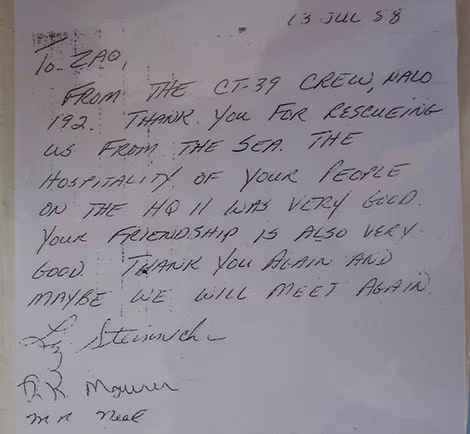 13 JUL 88
To ZAO,
FROM THE CT-39 CREW, HALO
192. THANK YOU FOR RESCUEING
US FROM THE SEA. THE
HOSPITALITY OF YOUR PEOPLE
ON THE HQ 11 WAS VERY GOOD.
YOUR FRIENDSHIP IS ALSO VERY
GOOD. THANK YOU AGAIN AND
MAYBE WE WILL MEET AGAIN.
K Maurer
M R Neal